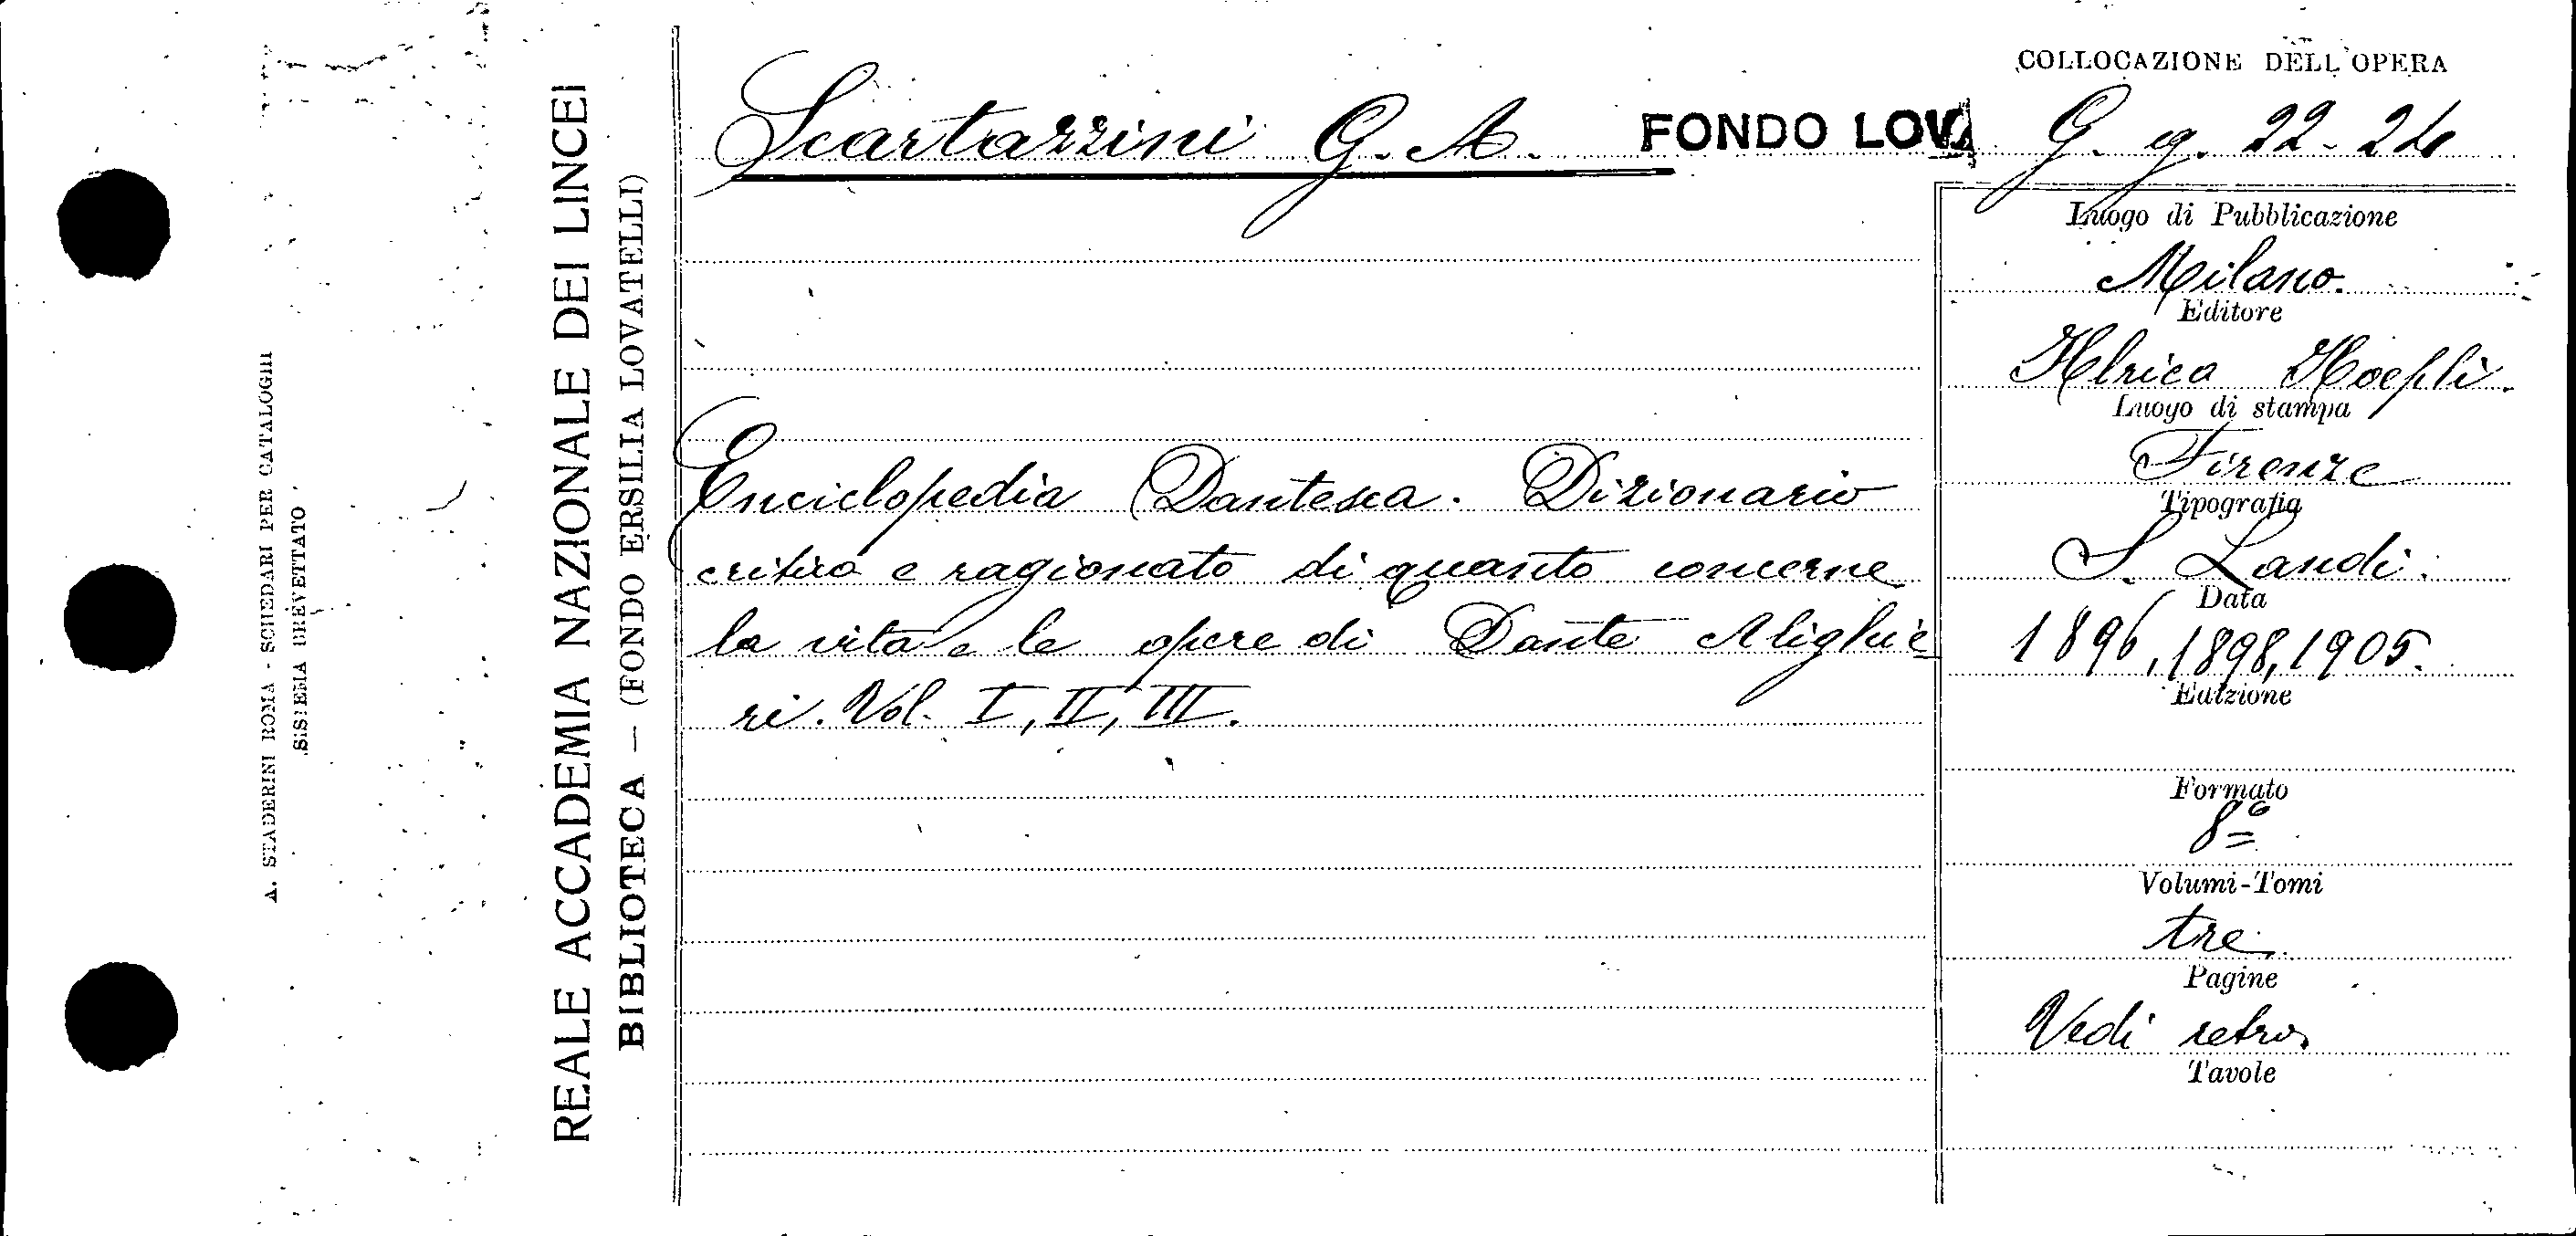 A. STADERINI ROMA - SCHEDARI PER CATALOGHI
SISTEMA BREVETTATO
REALE ACCADEMIA NAZIONALE DEI LINCEI
BIBLIOTECA — (FONDO ERSILIA LOVATELLI)
Scartazzini G. A.
FONDO LOV.
COLLOCAZIONE DELL'OPERA
G. g. 22-24
Enciclopedia Dantesca. Dizionario
critico e ragionato di quanto concerne
la vita e le opere di Dante Alighie
ri. Vol. I, II, III.
Luogo di Pubblicazione
Milano.
Editore
Hoepli.
Luogo di stampa
Firenze
Tipografia
S. Landi.
Data
1896, 1898, 1905.
Edizione
Formato
8º
Volumi-Tomi
tre.
Pagine
Vedi retro
Tavole